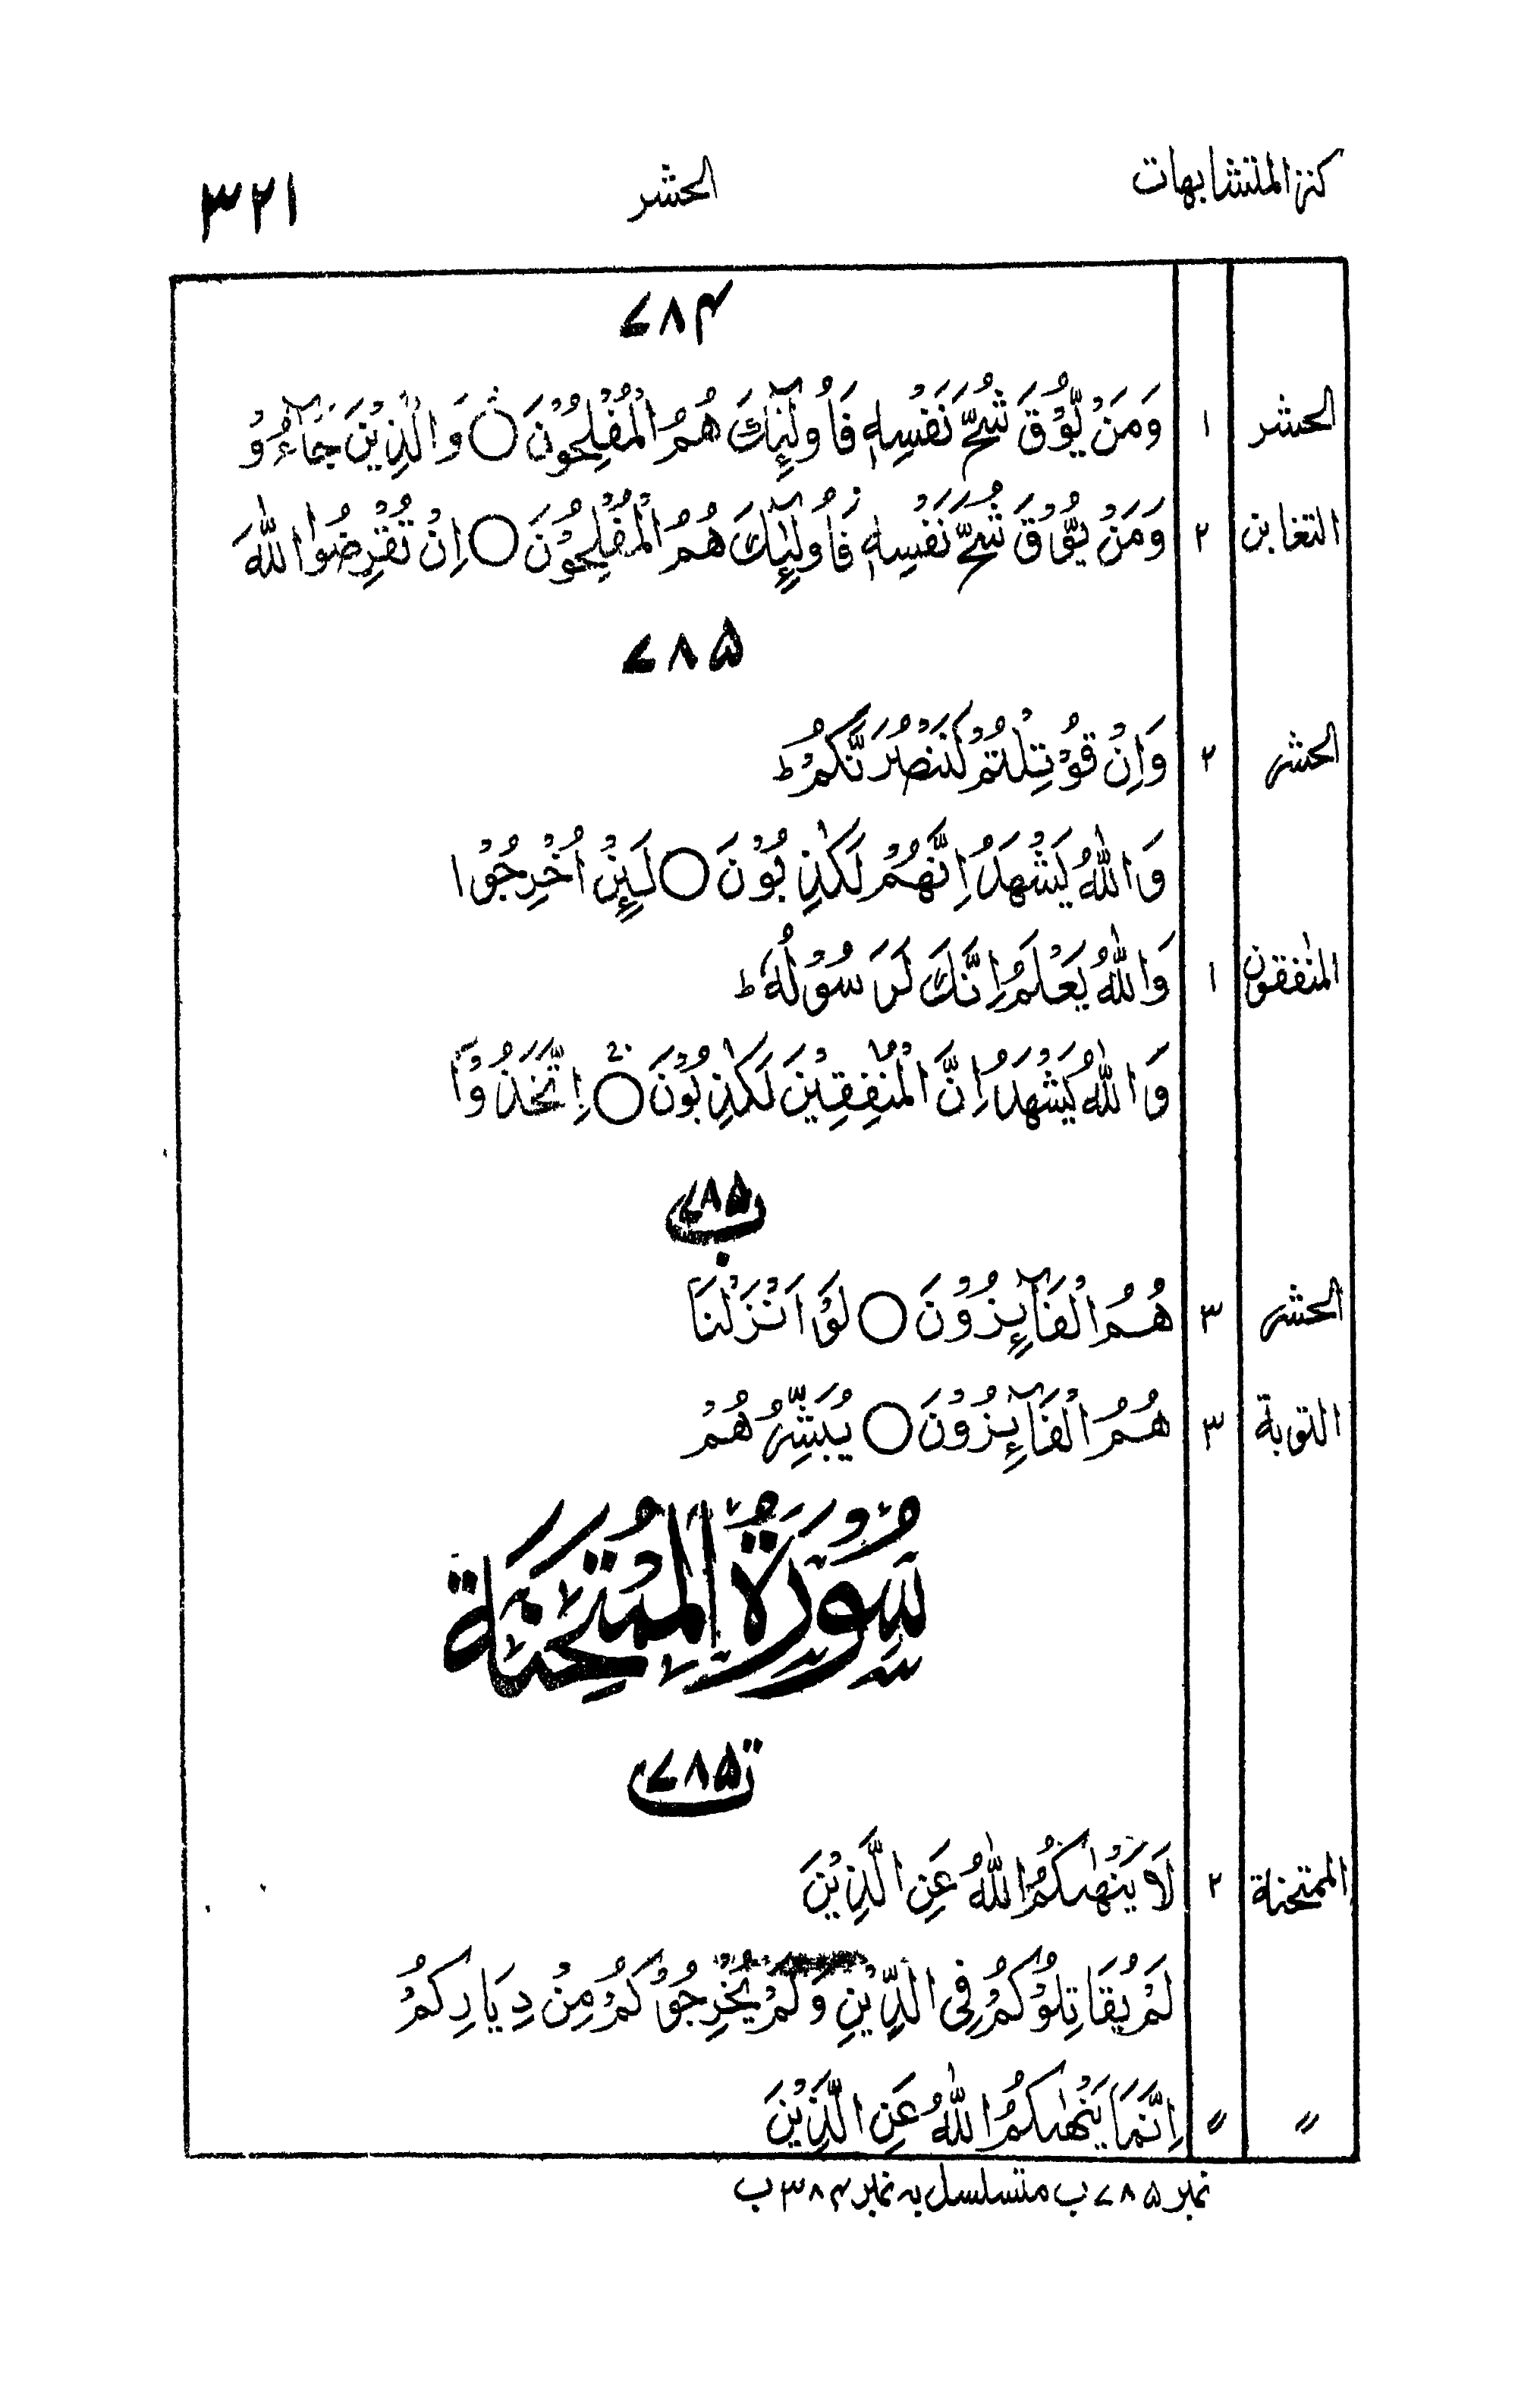 كنز المتشابهات الحشر ۳۲۱
۷۸۴
الحشر ۱ وَمَنْ يُّوْقَ شُحَّ نَفْسِهٖ فَاُولٰٓئِكَ هُمُ الْمُفْلِحُوْنَ ○ وَالَّذِيْنَ جَآءُوْ
التغابن ۲ وَمَنْ يُّوْقَ شُحَّ نَفْسِهٖ فَاُولٰٓئِكَ هُمُ الْمُفْلِحُوْنَ ○ اِنْ تُقْرِضُوا اللّٰهَ
۷۸۵
الحشر ۲ وَاِنْ قُوْتِلْتُمْ لَنَنْصُرَنَّكُمْ ط
وَاللّٰهُ يَشْهَدُ اِنَّهُمْ لَكٰذِبُوْنَ ○ لَئِنْ اُخْرِجُوْا
المنٰفقون ۱ وَاللّٰهُ يَعْلَمُ اِنَّكَ لَرَسُوْلُهٗ ط
وَاللّٰهُ يَشْهَدُ اِنَّ الْمُنٰفِقِيْنَ لَكٰذِبُوْنَ ○ اِتَّخَذُوْٓا
۷۸۵ ب
الحشر ۳ هُمُ الْفَآئِزُوْنَ ○ لَوْ اَنْزَلْنَا
التوبة ۳ هُمُ الْفَآئِزُوْنَ ○ يُبَشِّرُهُمْ
سُوْرَةُ الْمُمْتَحِنَة
۷۸۵ ت
الممتحنة ۲ لَا يَنْهٰىكُمُ اللّٰهُ عَنِ الَّذِيْنَ
لَمْ يُقَاتِلُوْكُمْ فِى الدِّيْنِ وَلَمْ يُخْرِجُوْكُمْ مِنْ دِيَارِكُمْ
〃 〃 اِنَّمَا يَنْهٰىكُمُ اللّٰهُ عَنِ الَّذِيْنَ
نمبر ۷۸۵ ب متسلسل بہ نمبر ۳۸۴ ب